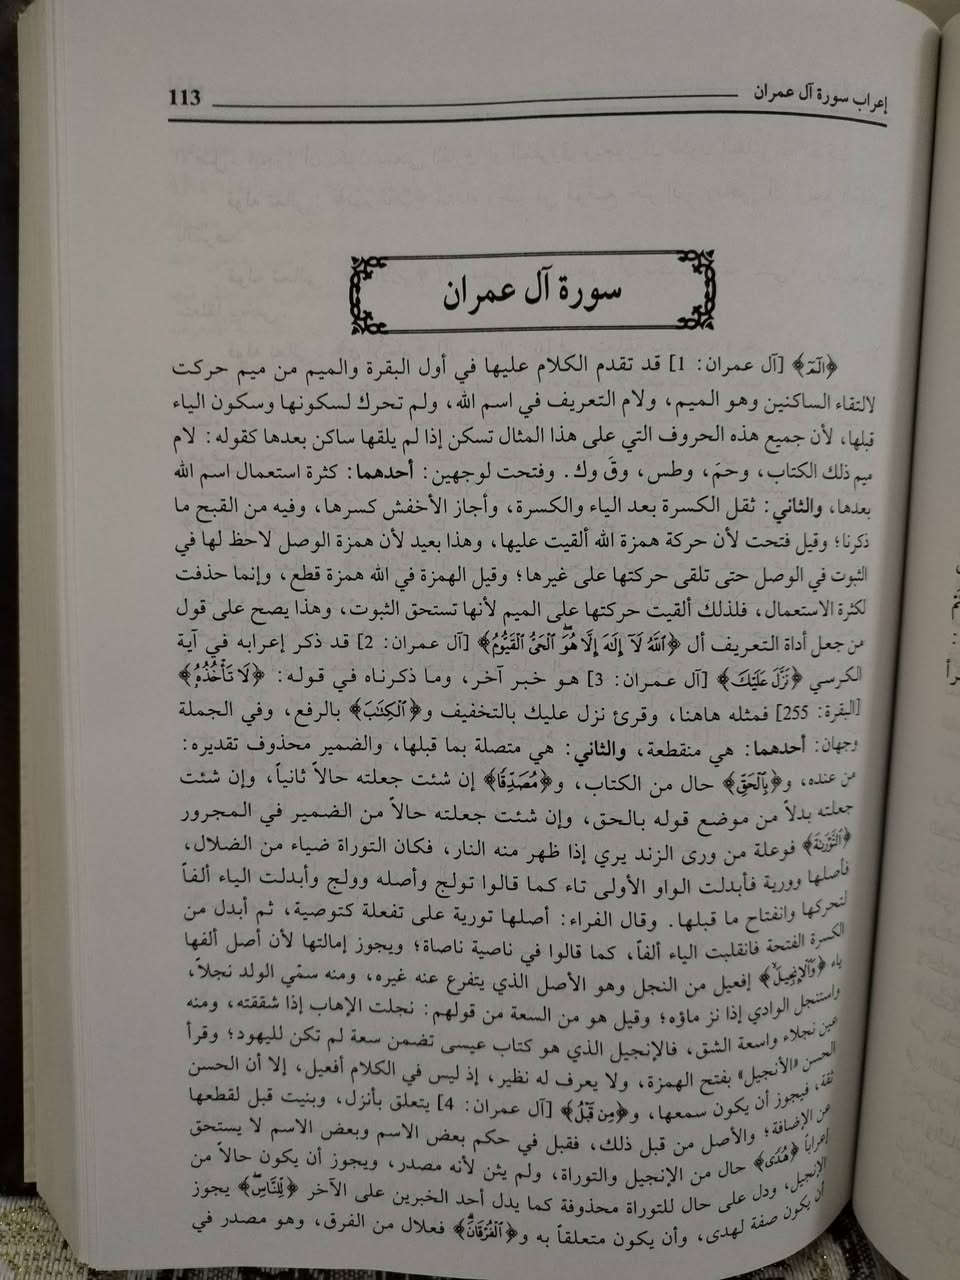 إعراب سورة آل عمران 113
سورة آل عمران
﴿الٓمٓ﴾ [آل عمران: 1] قد تقدم الكلام عليها في أول البقرة والميم من ميم حركت
لالتقاء الساكنين وهو الميم، ولام التعريف في اسم الله، ولم تحرك لسكونها وسكون الياء
قبلها، لأن جميع هذه الحروف التي على هذا المثال تسكن إذا لم يلقها ساكن بعدها كقوله: لام
ميم ذلك الكتاب، وحمَ، وطس، وقَ وك. وفتحت لوجهين: أحدهما: كثرة استعمال اسم الله
بعدها، والثاني: ثقل الكسرة بعد الياء والكسرة، وأجاز الأخفش كسرها، وفيه من القبح ما
ذكرنا؛ وقيل فتحت لأن حركة همزة الله ألقيت عليها، وهذا بعيد لأن همزة الوصل لاحظ لها في
الثبوت في الوصل حتى تلقى حركتها على غيرها؛ وقيل الهمزة في الله همزة قطع، وإنما حذفت
لكثرة الاستعمال، فلذلك ألقيت حركتها على الميم لأنها تستحق الثبوت، وهذا يصح على قول
من جعل أداة التعريف أل ﴿ٱللَّهُ لَآ إِلَٰهَ إِلَّا هُوَ ٱلْحَىُّ ٱلْقَيُّومُ﴾ [آل عمران: 2] قد ذكر إعرابه في آية
الكرسي ﴿نَزَّلَ عَلَيْكَ﴾ [آل عمران: 3] هو خبر آخر، وما ذكرناه في قوله: ﴿لَا تَأْخُذُهُۥ﴾
[البقرة: 255] فمثله هاهنا، وقرئ نزل عليك بالتخفيف و﴿ٱلْكِتَٰبَ﴾ بالرفع، وفي الجملة
وجهان: أحدهما: هي منقطعة، والثاني: هي متصلة بما قبلها، والضمير محذوف تقديره:
من عنده، و﴿بِٱلْحَقِّ﴾ حال من الكتاب، و﴿مُصَدِّقًا﴾ إن شئت جعلته حالاً ثانياً، وإن شئت
جعلته بدلاً من موضع قوله بالحق، وإن شئت جعلته حالاً من الضمير في المجرور
﴿ٱلتَّوْرَىٰةَ﴾ فوعلة من ورى الزند يري إذا ظهر منه النار، فكان التوراة ضياء من الضلال،
فأصلها وورية فأبدلت الواو الأولى تاء كما قالوا تولج وأصله وولج وأبدلت الياء ألفاً
لتحركها وانفتاح ما قبلها. وقال الفراء: أصلها تورية على تفعلة كتوصية، ثم أبدل من
الكسرة الفتحة فانقلبت الياء ألفاً، كما قالوا في ناصية ناصاة؛ ويجوز إمالتها لأن أصل ألفها
ياء ﴿وَٱلْإِنجِيلَ﴾ إفعيل من النجل وهو الأصل الذي يتفرع عنه غيره، ومنه سمّي الولد نجلاً،
واستنجل الوادي إذا نز ماؤه؛ وقيل هو من السعة من قولهم: نجلت الإهاب إذا شققته، ومنه
عين نجلاء واسعة الشق، فالإنجيل الذي هو كتاب عيسى تضمن سعة لم تكن لليهود؛ وقرأ
الحسن «الأنجيل» بفتح الهمزة، ولا يعرف له نظير، إذ ليس في الكلام أفعيل، إلا أن الحسن
ثقة، فيجوز أن يكون سمعها، و﴿مِن قَبْلُ﴾ [آل عمران: 4] يتعلق بأنزل، وبنيت قبل لقطعها
عن الإضافة؛ والأصل من قبل ذلك، فقبل في حكم بعض الاسم وبعض الاسم لا يستحق
إعراباً ﴿هُدًى﴾ حال من الإنجيل والتوراة، ولم يثن لأنه مصدر، ويجوز أن يكون حالاً من
الإنجيل، ودل على حال للتوراة محذوفة كما يدل أحد الخبرين على الآخر ﴿لِّلنَّاسِ﴾ يجوز
أن يكون صفة لهدى، وأن يكون متعلقاً به و﴿ٱلْفُرْقَانَ﴾ فعلال من الفرق، وهو مصدر في